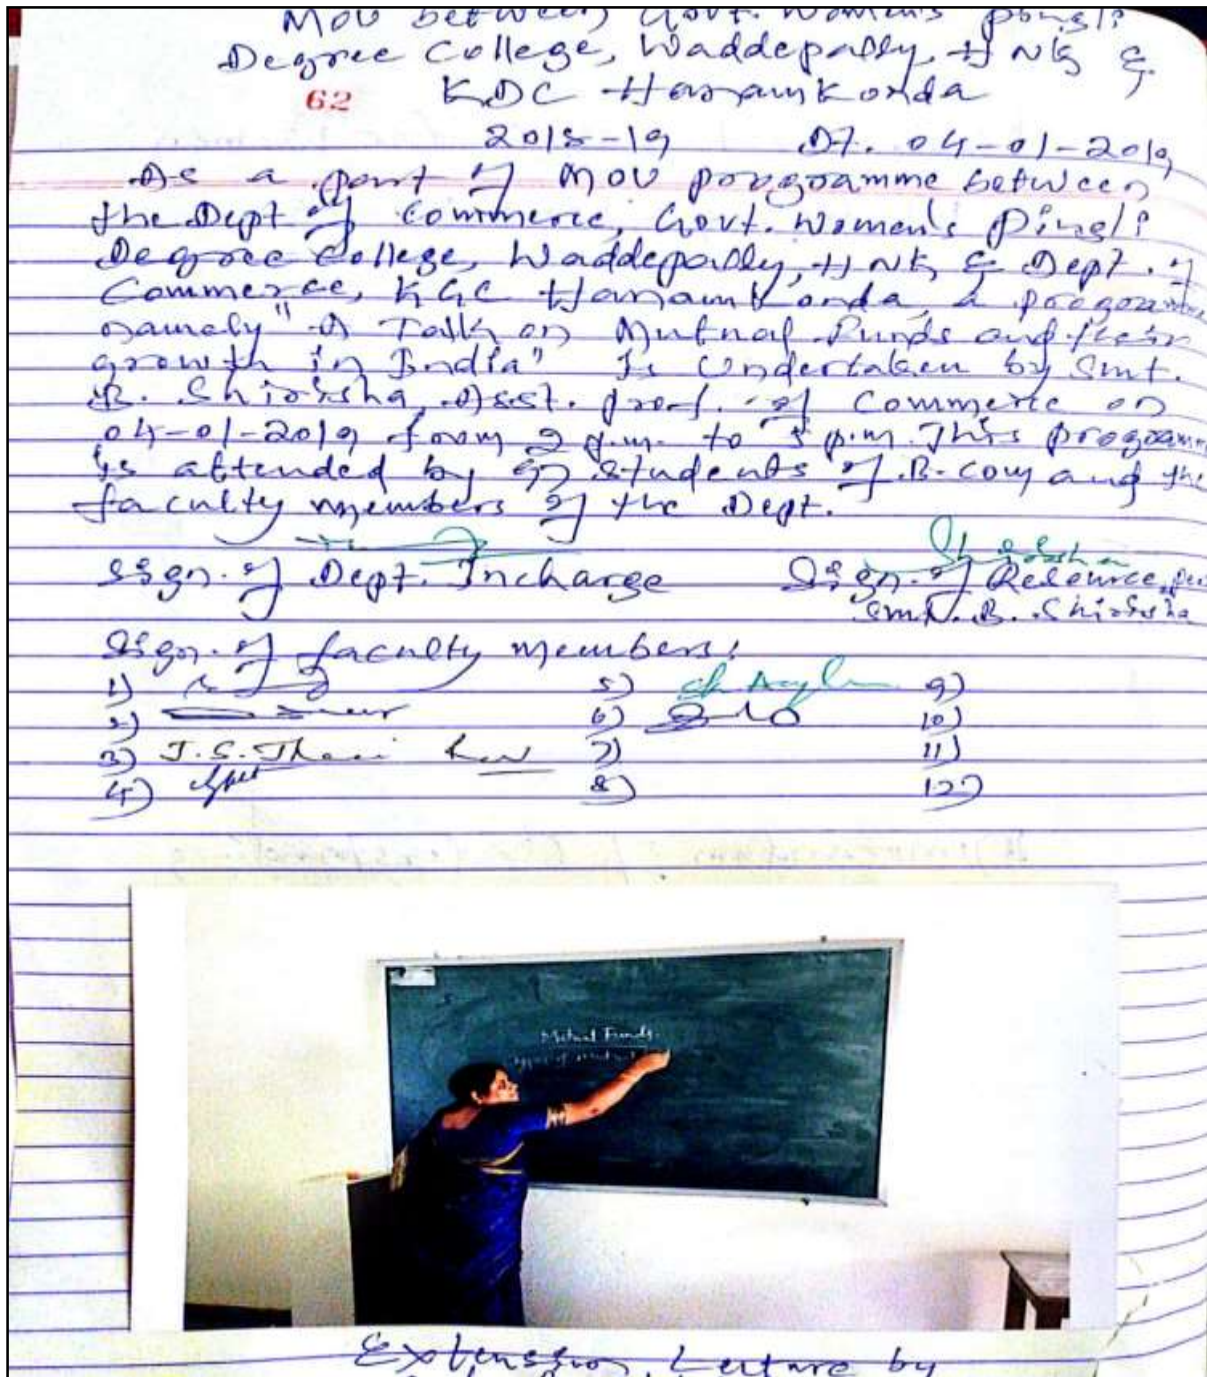 MOU between Govt. Women's Pingli
Degree College, Waddepally, HNK &
62 KDC Hanamkonda
2018-19 Dt. 04-01-2019
As a part of MOU programme between
the Dept of Commerce, Govt. Women's Pingli
Degree College, Waddepally, HNK & Dept. of
Commerce, KGC Hanamkonda, a programme
namely "A Talk on Mutual Funds and their
growth in India" Is Undertaken by Smt.
B. Shirisha, Asst. prof. of Commerce on
04-01-2019 from 2 p.m. to 3 p.m. This programme
is attended by students of B.com and the
faculty members of the Dept.
Sign. of Dept. Incharge Sign. of Resource per
Smt. B. Shirisha
Sign. of faculty members:
1) 5) 9)
2) 6) 10)
3) 7) 11)
4) 8) 12)
Mutual Funds
Types of Mutual
Extension Lecture by